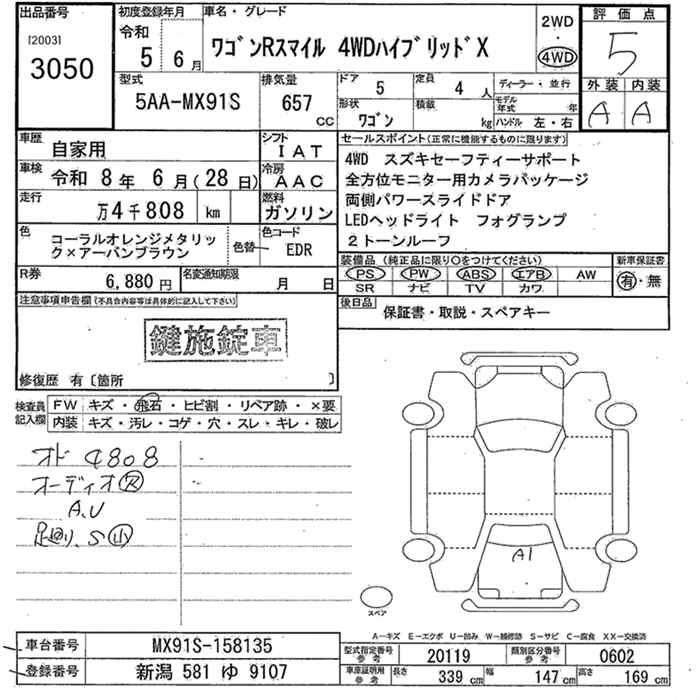 出品番号
[2003]
3050
初度登録年月
令和
5 年 6 月
車名・グレード
ワゴンRスマイル 4WDハイブリッドX
2WD
・
4WD
評価点
5
外装 内装
A A
型式
5AA-MX91S
排気量
657
cc
ドア
5
定員
4 人
形状
ワゴン
積載
kg
ディーラー・並行
モデル年式 年
ハンドル 左・右
車歴
自家用
シフト
IAT
車検
令和 8 年 6 月(28 日)
冷房
AAC
走行
万4千808 km
燃料
ガソリン
色
コーラルオレンジメタリック×アーバンブラウン
色替
色コード
EDR
R券
6,880 円
名変通知期限
月 日
セールスポイント(正常に機能するものに限ります)
4WD スズキセーフティーサポート
全方位モニター用カメラパッケージ
両側パワースライドドア
LEDヘッドライト フォグランプ
2トーンルーフ
装備品 (純正品に限り○をつけてください)
PS PW ABS エアB AW
SR ナビ TV カワ
新車保証書
有・無
後日品
保証書・取説・スペアキー
注意事項申告欄(不具合内容等は具体的に記入して下さい)
鍵施錠車
修復歴 有〔箇所 〕
検査員記入欄
FW キズ・飛石・ヒビ割・リペア跡・×要
内装 キズ・汚レ・コゲ・穴・スレ・キレ・破レ
オド 4808
オーディオ
A.U
足回り、S
A1
スペア
A―キズ E―エクボ U―凹み W―補修跡 S―サビ C―腐食 XX―交換済
車台番号
MX91S-158135
登録番号
新潟 581 ゆ 9107
型式指定番号
参考
20119
類別区分番号
参考
0602
車庫証明用
参考
長さ
339 cm
幅
147 cm
高さ
169 cm